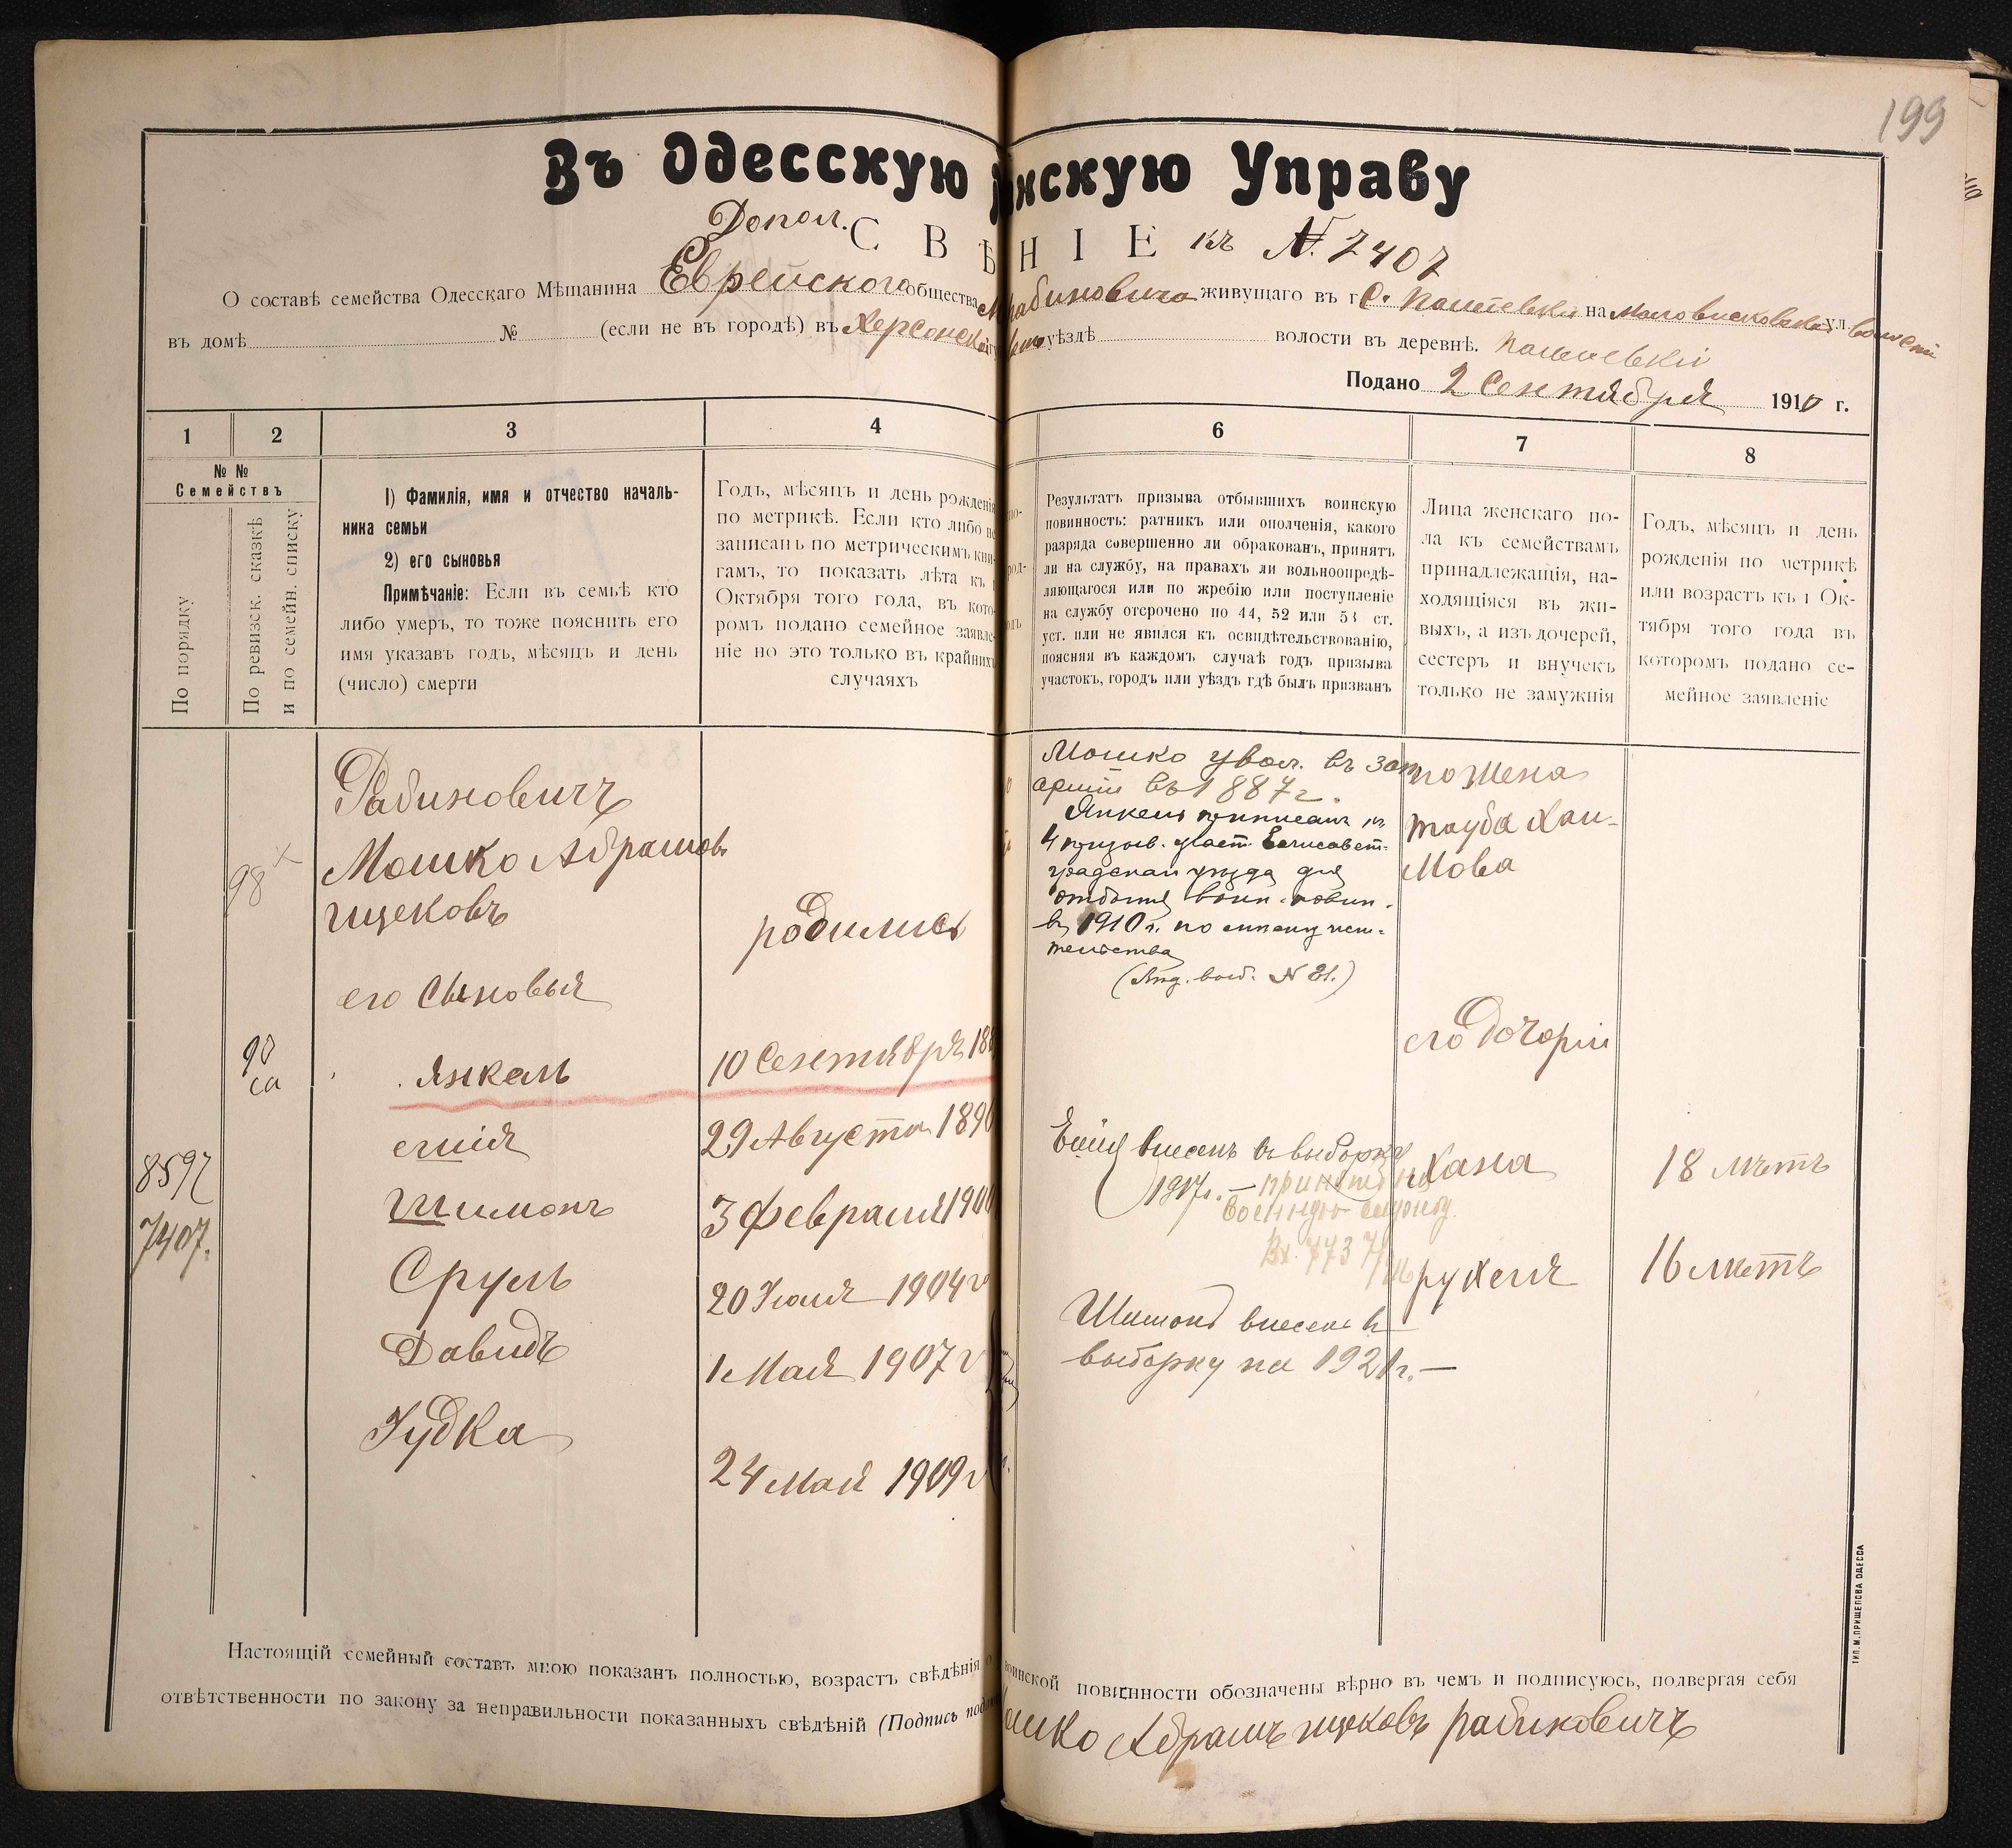 199
Въ Одесскую нскую Управу
Допол. СВѢ НІЕ къ №. 7407
О составѣ семейства Одесскаго Мѣщанина Еврейскаго общества М рабиновича живущаго въ г С. на Маловисковской ул. волости
въ домѣ № (если не въ городѣ) въ Херсонской уѣздѣ волости въ деревнѣ.
Подано 2 Сентября 1910 г.
1 2 3 4 6 7 8
№ №
Семействъ
По порядку
По ревизск. сказкѣ
и по семейн. списку
1) Фамилія, имя и отчество началь-
ника семьи
2) его сыновья
Примѣчаніе: Если въ семьѣ кто
либо умеръ, то тоже пояснить его
имя указавъ годъ, мѣсяцъ и день
(число) смерти
Годъ, мѣсяцъ и день рожденія
по метрикѣ. Если кто либо не
записанъ по метрическимъ кни-
гамъ, то показать лѣта къ 1
Октября того года, въ кото-
ромъ подано семейное заявле-
ніе но это только въ крайнихъ
случаяхъ
Результатъ призыва отбывшихъ воинскую
повинность: ратникъ или ополченія, какого
разряда совершенно ли обракованъ, принятъ
ли на службу, на правахъ ли вольноопредѣ-
ляющагося или по жребію или поступленіе
на службу отсрочено по 44, 52 или 53 ст.
уст. или не явился къ освидѣтельствованію,
поясняя въ каждомъ случаѣ годъ призыва
участокъ, городъ или уѣздъ гдѣ былъ призванъ
Лица женскаго по-
ла къ семействамъ
принадлежащія, на-
ходящіяся въ жи-
выхъ, а изъ дочерей,
сестеръ и внучекъ
только не замужнія
Годъ, мѣсяцъ и день
рожденія по метрикѣ
или возрастъ къ 1 Ок-
тября того года въ
которомъ подано се-
мейное заявленіе
Рабиновичъ
Мошко Абрамовъ
ицековъ
98
родились
его Сыновья
90
са
Янкель
10 Сентября 188
егшія
29 Августа 1896
Шимонъ
3 февраля 1900
Сруль
20 Іюля 1904 г
Давидъ
1 Мая 1907 г
Іудка
24 Мая 1909 г
8597
7407.
Мошко увол. въ зап
арміи въ 1887 г.
Янкель приписанъ къ
4 призыв. участ. Елисавет-
градскаго уѣзда для
отбытія воин. повин.
въ 1910 г. по
(выб. № 21.)
внесенъ въ выборку
1917 г. — принятъ на
военную службу.
Вх. 773
Шимонъ внесенъ въ
выборку на 1921 г. —
жена
тауба Хаи-
мова
его дочерьи
Хана 18 лѣтъ
рухеля 16 лѣтъ
Настоящій семейный составъ мною показанъ полностью, возрастъ свѣдѣнія о воинской повинности обозначены вѣрно въ чемъ и подписуюсь, подвергая себя
отвѣтственности по закону за неправильности показанныхъ свѣдѣній (Подпись пода
ошко Абрамъ ицковъ рабиновичъ
ТИП. М. ПРИЩЕПОВА ОДЕССА